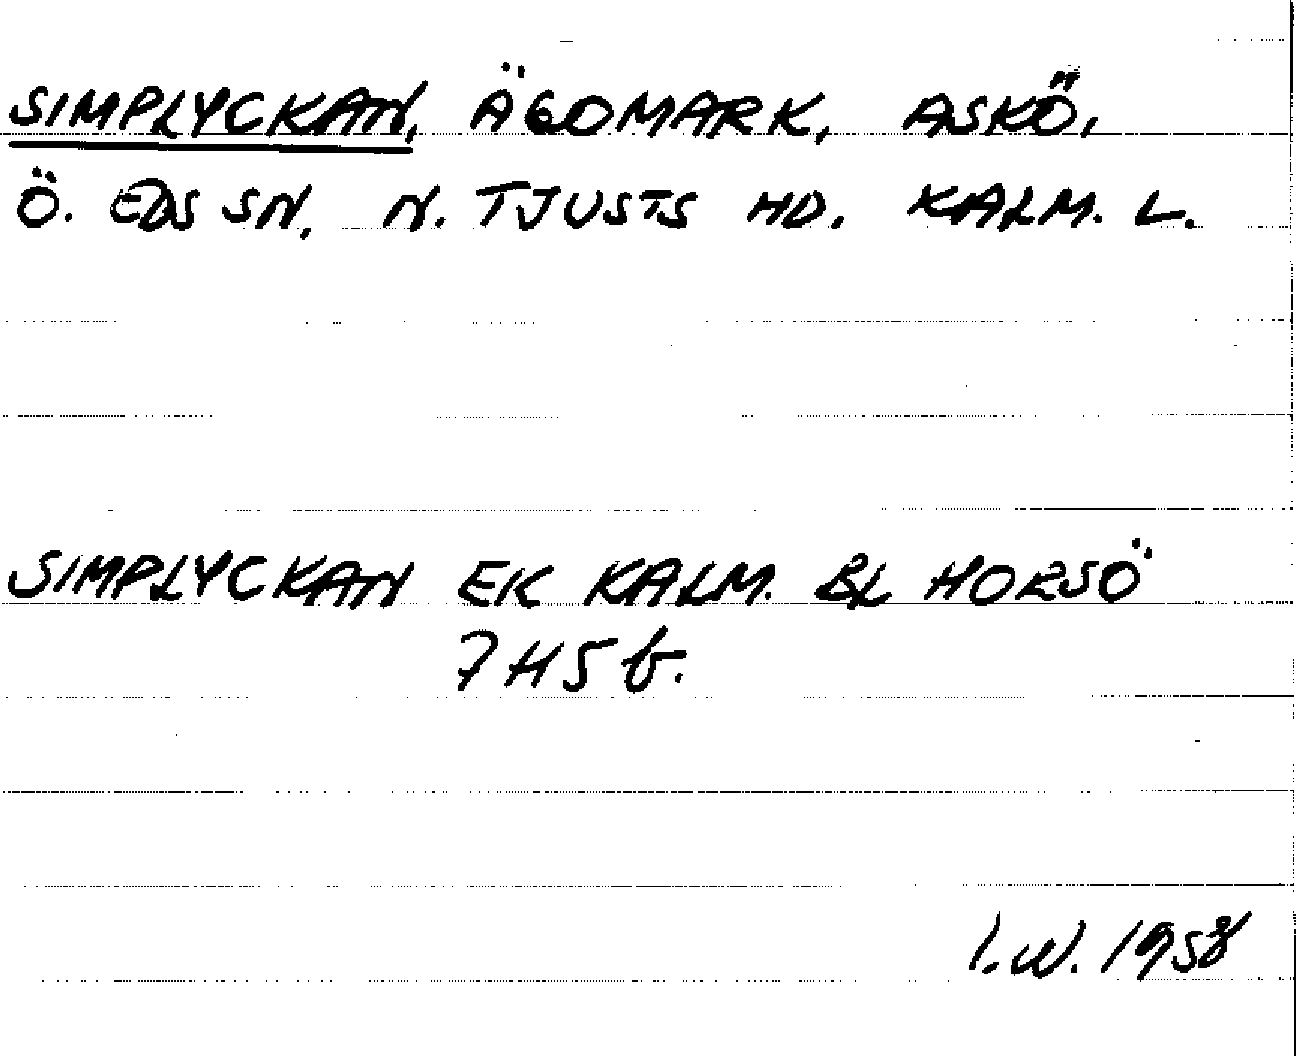 SIMPLYCKAN, ÄGOMARK, ASKÖ,
Ö. EDS SN, N. TJUSTS HD. KALM. L.
SIMPLYCKAN EK KALM. BL HORSÖ
7H5b.
I.W. 1958